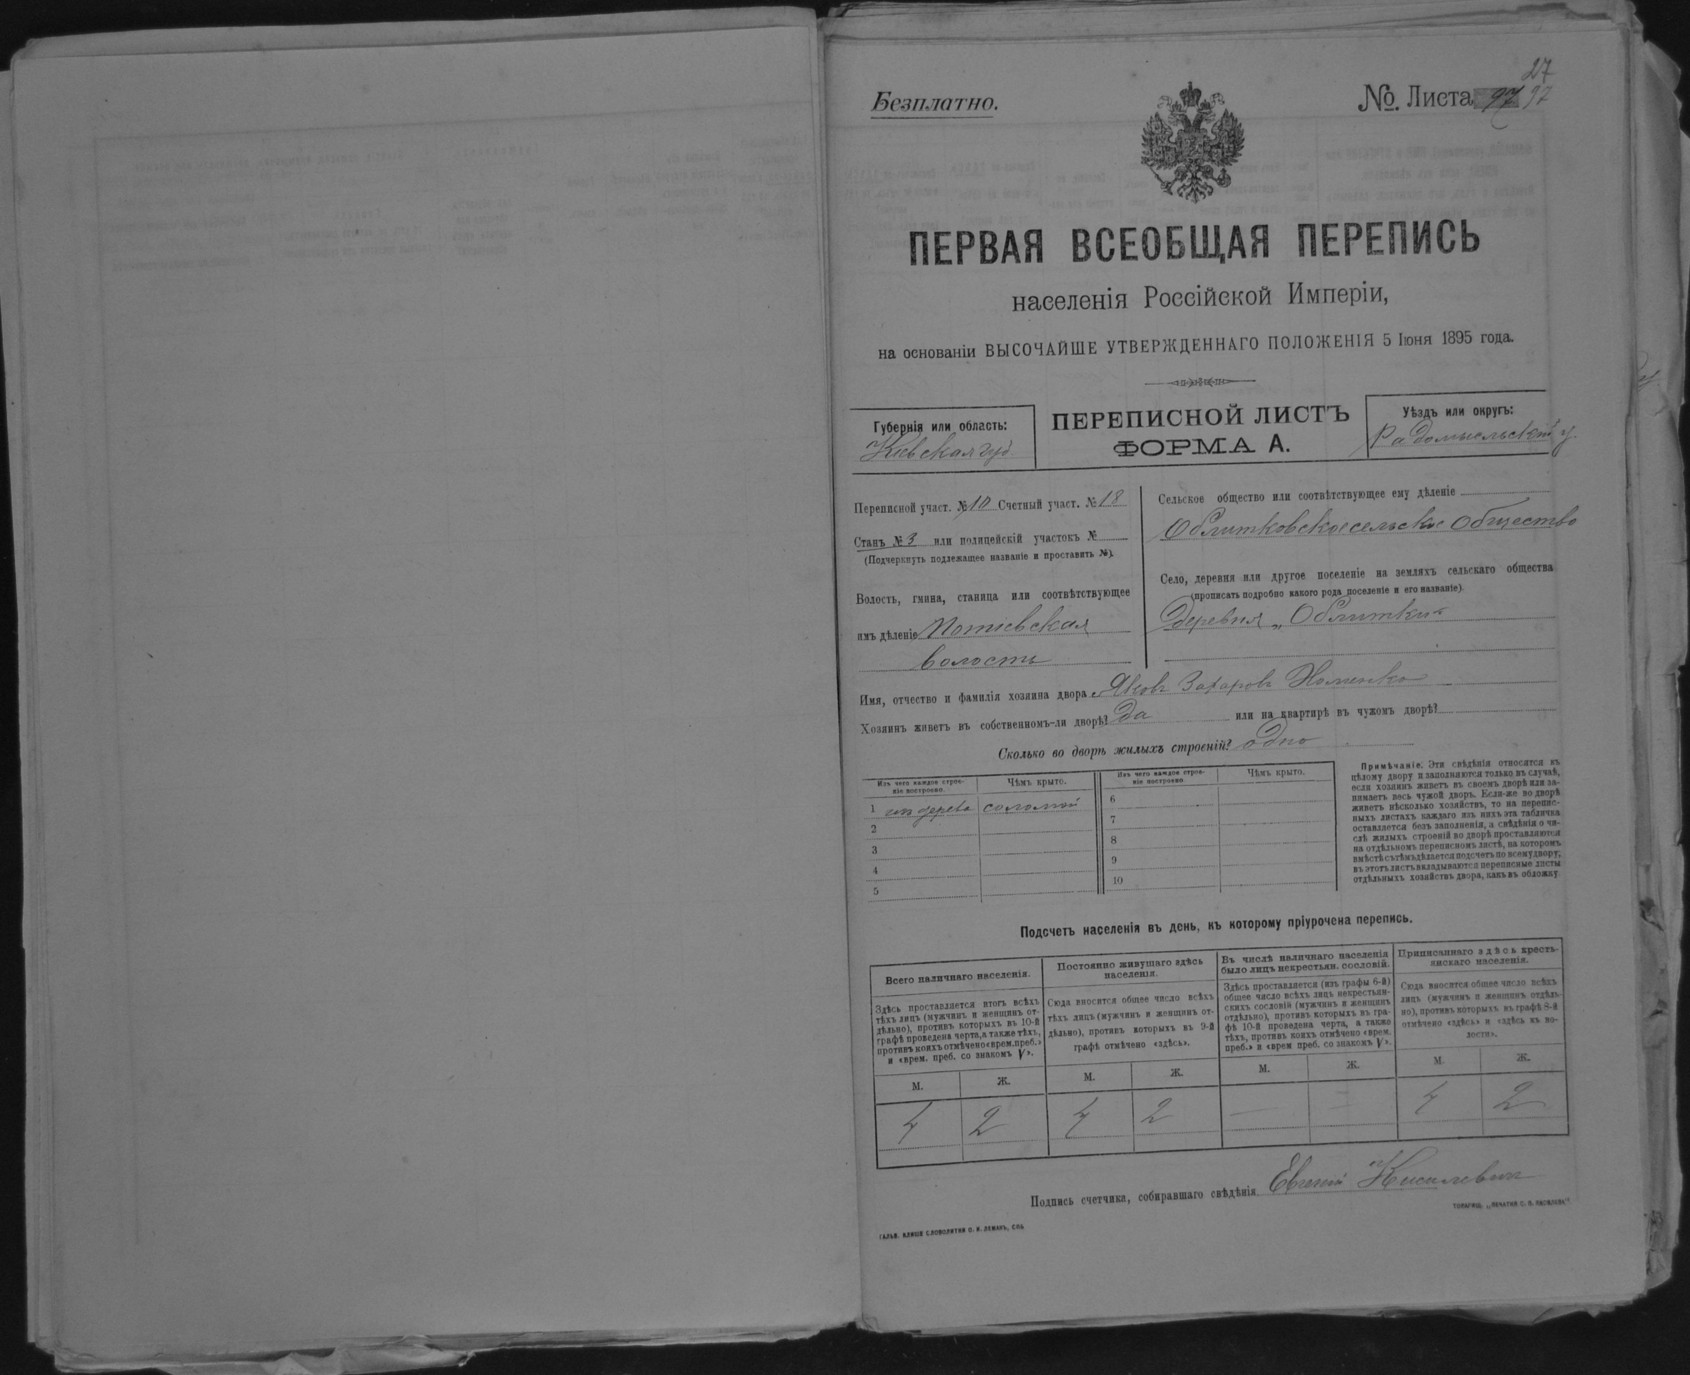 27
Безплатно.
№ Листа 97 97
ПЕРВАЯ ВСЕОБЩАЯ ПЕРЕПИСЬ
населенія Россійской Имперіи,
на основаніи ВЫСОЧАЙШЕ УТВЕРЖДЕННАГО ПОЛОЖЕНІЯ 5 Іюня 1895 года.
Губернія или область:
Кіевская губ
ПЕРЕПИСНОЙ ЛИСТЪ
ФОРМА А.
Уѣздъ или округъ:
Радомысльскій у.
Переписной участ. № 10 Счетный участ. № 18
Станъ № 3 или полицейскій участокъ №
(Подчеркнуть подлежащее названіе и проставить №).
Волость, гмина, станица или соотвѣтствующее
имъ дѣленіе Потіевская
волость
Сельское общество или соотвѣтствующее ему дѣленіе
Облитковское сельское Общество
Село, деревня или другое поселеніе на земляхъ сельскаго общества
(прописать подробно какого рода поселеніе и его названіе).
Деревня „Облитки"
Имя, отчество и фамилія хозяина двора Яковъ Захаровъ Хоменко
Хозяинъ живетъ въ собственномъ-ли дворѣ? Да или на квартирѣ въ чужомъ дворѣ?
Сколько во дворѣ жилыхъ строеній? одно
Изъ чего каждое строе-
ніе построено.
Чѣмъ крыто.
Изъ чего каждое строе-
ніе построено.
Чѣмъ крыто.
1 изъ дерева соломой
2
3
4
5
6
7
8
9
10
Примѣчаніе. Эти свѣдѣнія относятся къ
цѣлому двору и заполняются только въ случаѣ,
если хозяинъ живетъ въ своемъ дворѣ или за-
нимаетъ весь чужой дворъ. Если-же во дворѣ
живетъ нѣсколько хозяйствъ, то на перепис-
ныхъ листахъ каждаго изъ нихъ эта табличка
оставляется безъ заполненія, а свѣдѣнія о чи-
слѣ жилыхъ строеній во дворѣ проставляются
на отдѣльномъ переписномъ листѣ, на которомъ
вмѣстѣ съ тѣмъ дѣлается подсчетъ по всему двору;
въ этотъ листъ вкладываются переписные листы
отдѣльныхъ хозяйствъ двора, какъ въ обложку.
Подсчетъ населенія въ день, къ которому пріурочена перепись.
Всего наличнаго населенія.
Здѣсь проставляется итогъ всѣхъ
тѣхъ лицъ (мужчинъ и женщинъ от-
дѣльно), противъ которыхъ въ 10-й
графѣ проведена черта, а также тѣхъ,
противъ коихъ отмѣчено «врем. преб.»
и «врем. преб. со знакомъ V».
Постоянно живущаго здѣсь
населенія.
Сюда вносится общее число всѣхъ
тѣхъ лицъ (мужчинъ и женщинъ от-
дѣльно), противъ которыхъ въ 9-й
графѣ отмѣчено «здѣсь».
Въ числѣ наличнаго населенія
было лицъ некрестьян. сословій.
Здѣсь проставляется (изъ графы 6-й)
общее число всѣхъ лицъ некрестьян-
скихъ сословій (мужчинъ и женщинъ
отдѣльно), противъ которыхъ въ гра-
фѣ 10-й проведена черта, а также
тѣхъ, противъ коихъ отмѣчено «врем.
преб.» и «врем преб. со знакомъ V».
Приписаннаго здѣсь кресть-
янскаго населенія.
Сюда вносится общее число всѣхъ
лицъ (мужчинъ и женщинъ отдѣль-
но), противъ которыхъ въ графѣ 8-й
отмѣчено «здѣсь» и «здѣсь къ во-
лости».
М. Ж. М. Ж. М. Ж. М. Ж.
4 2 4 2 — — 4 2
Подпись счетчика, собиравшаго свѣдѣнія Евгеній Киселевич
ГАЛЬВ. КЛИШЕ СЛОВОЛИТНИ О. И. ЛЕМАНЪ, СПБ.
ТОВАРИЩ. „ПЕЧАТНЯ С. П. ЯКОВЛЕВА".